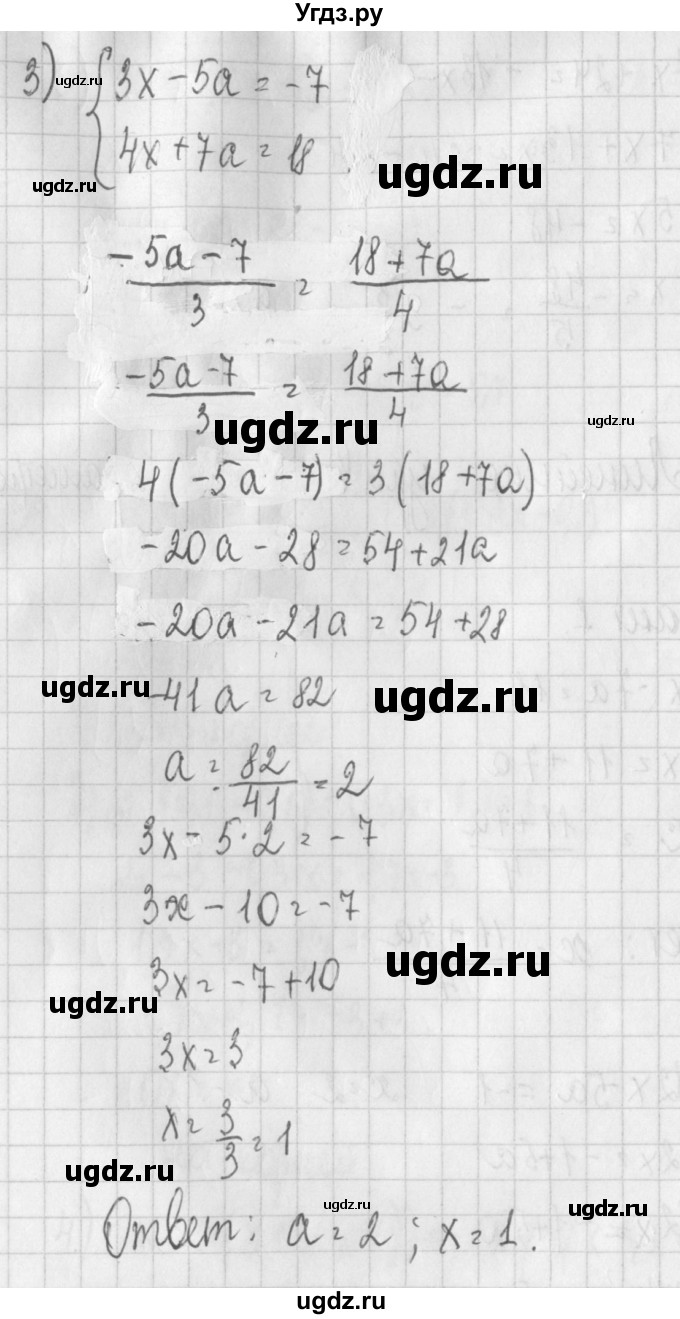 Угдз.ру
3) { 3x - 5a = -7
ugdz.ru
4x + 7a = 18
ugdz.ru
ugdz.ru
(-5a - 7)/3 = (18 + 7a)/4
(-5a - 7)/3 = (18 + 7a)/4
ugdz.ru
ugdz.ru
4(-5a - 7) = 3(18 + 7a)
-20a - 28 = 54 + 21a
-20a - 21a = 54 + 28
ugdz.ru
-41a = 82
ugdz.ru
a = 82/41 = 2
3x - 5·2 = -7
3x - 10 = -7
ugdz.ru
3x = -7 + 10
ugdz.ru
3x = 3
x = 3/3 = 1
ugdz.ru
ugdz.ru
ugdz.ru
Ответ: a = 2; x = 1.
ugdz.ru